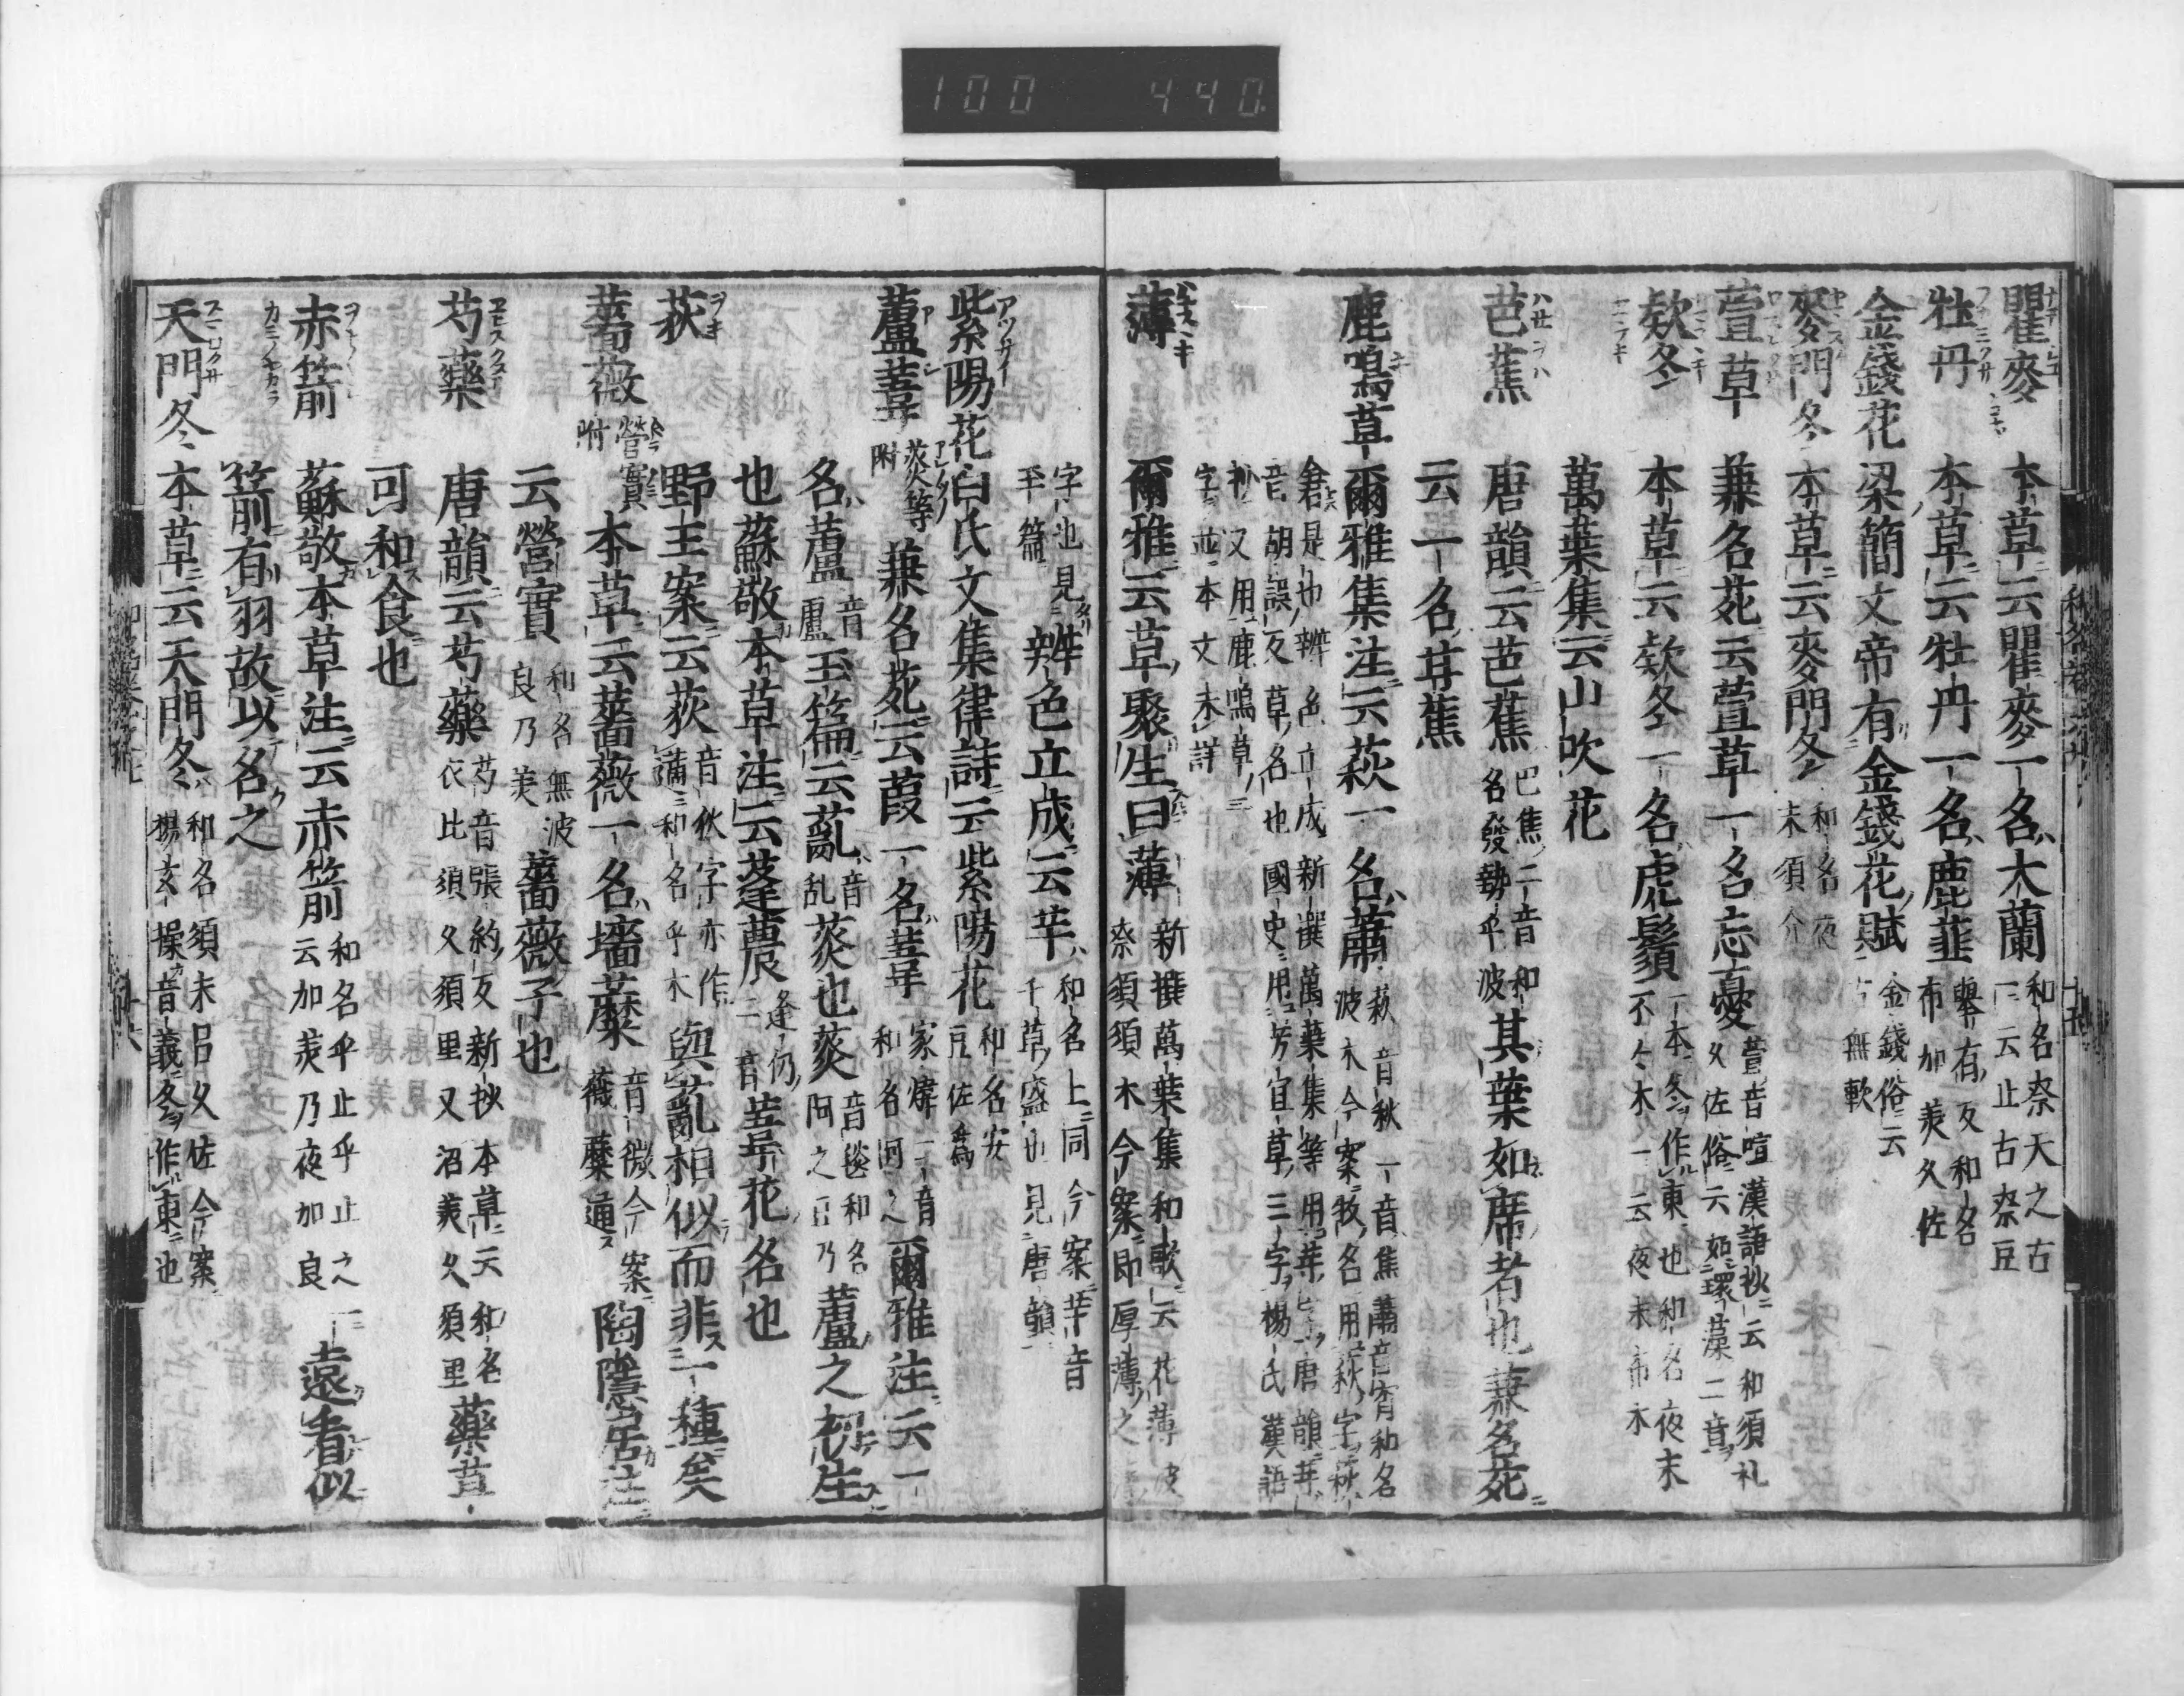 100 440
瞿麥 本草云瞿麥一名大蘭 和名奈天之古 一云止古奈豆
牡丹 本草云牡丹一名鹿韮 擧有反和名 布加美久佐
金錢花 梁簡文帝有金錢花賦 金錢俗云 無軟
麥門冬 本草云麥門冬 和名夜 末須介
萱草 兼名苑云萱草一名忘憂 萱音喧漢語抄云和須礼 久佐俗云如環藻二音
欵冬 本草云欵冬一名虎鬚 一本冬作東也和名夜末 不々木一云夜末布木
萬葉集云山吹花
芭蕉 唐韻云芭蕉 巴焦二音和 名發勢乎波 其葉如席者也兼名苑
云一名甘蕉
鹿鳴草 爾雅集注云萩一名蕭 萩音秋一音焦蕭音宵和名 波木今案牧名用萩字萩
倉是也辨色立成新撰萬葉集等用 唐韻
音胡誤反草名也國史用芳宜草三字楊氏漢語
抄又用鹿鳴草三
字並本文未詳
薄 爾雅云草聚生曰薄 新撰萬葉集和歌云花薄波 奈須須木今案即厚薄之
字也見 玉篇 辨色立成云芊 和名上同今案芊音 千草盛也見唐韻
紫陽花 白氏文集律詩云紫陽花 和名安 豆佐爲
蘆葦 菼等附 兼名苑云葭一名葦 家煒二音 和名阿之 爾雅注云一
名蘆 音盧 玉篇云薍 音乱 菼也菼 音毯和名 阿之豆乃 蘆之初生
也蘇敬本草注云蓬蕽 逢仍二音 葦花名也
荻 野王案云荻 音狄字亦作 和名乎木 與薍相似而非一種矣
薔薇 營實附 本草云薔薇一名墻蘼 音微今案 薇蘼通 陶隱居注
云營實 和名無波 良乃美 薔薇子也
芍藥 唐韻云芍藥 芍音張約反新抄本草云和名 衣比須久須里又沼美久須里 藥草
可和食也
赤箭 蘇敬本草注云赤箭 和名乎止乎止之 云加美乃夜加良 遠看似
箭有羽故以名之
天門冬 本草云天門冬 和名須末呂久佐今案 楊玄操音義冬作東也